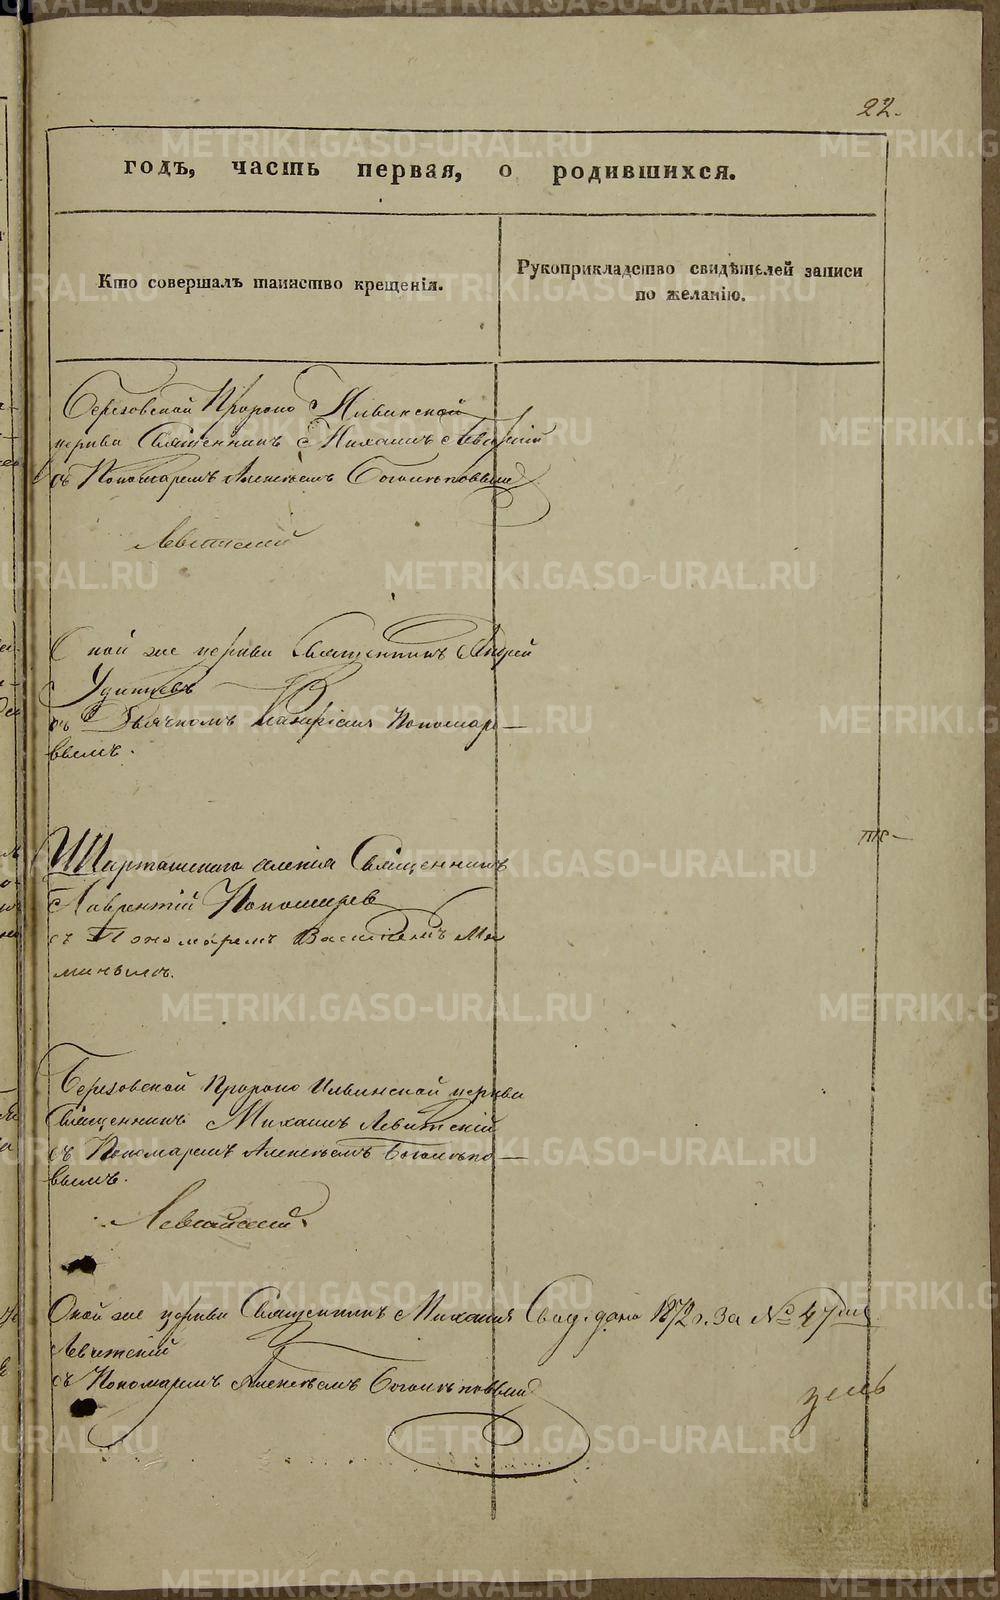 22.
годъ, часть первая, о родившихся.
Кто совершалъ таинство крещенія.
Рукоприкладство свидѣтелей записи
по желанію.
Березовской Пророко Ильинской
церкви Священникъ Михаилъ Левитскій
съ Пономаремъ Алексѣемъ Боголѣповымъ
Левитский
Оной же церкви Священникъ Андрей
Удинцевъ
съ Дьячкомъ Пономаре-
вымъ.
Шарташскаго селенія Священникъ
Лаврентій Пономаревъ
съ Пономаремъ Василіемъ Ма
минымъ.
Березовской Пророко Ильинской церкви
Священникъ Михаилъ Левитскій
съ Пономаремъ Алексѣемъ Боголѣпо-
вымъ.
Левитский.
Оной же церкви Священникъ Михаилъ
Левитскій
съ Пономаремъ Алексѣемъ Боголѣповымъ
Свид. дано 1872 г. За № 47
METRIKI.GASO-URAL.RU